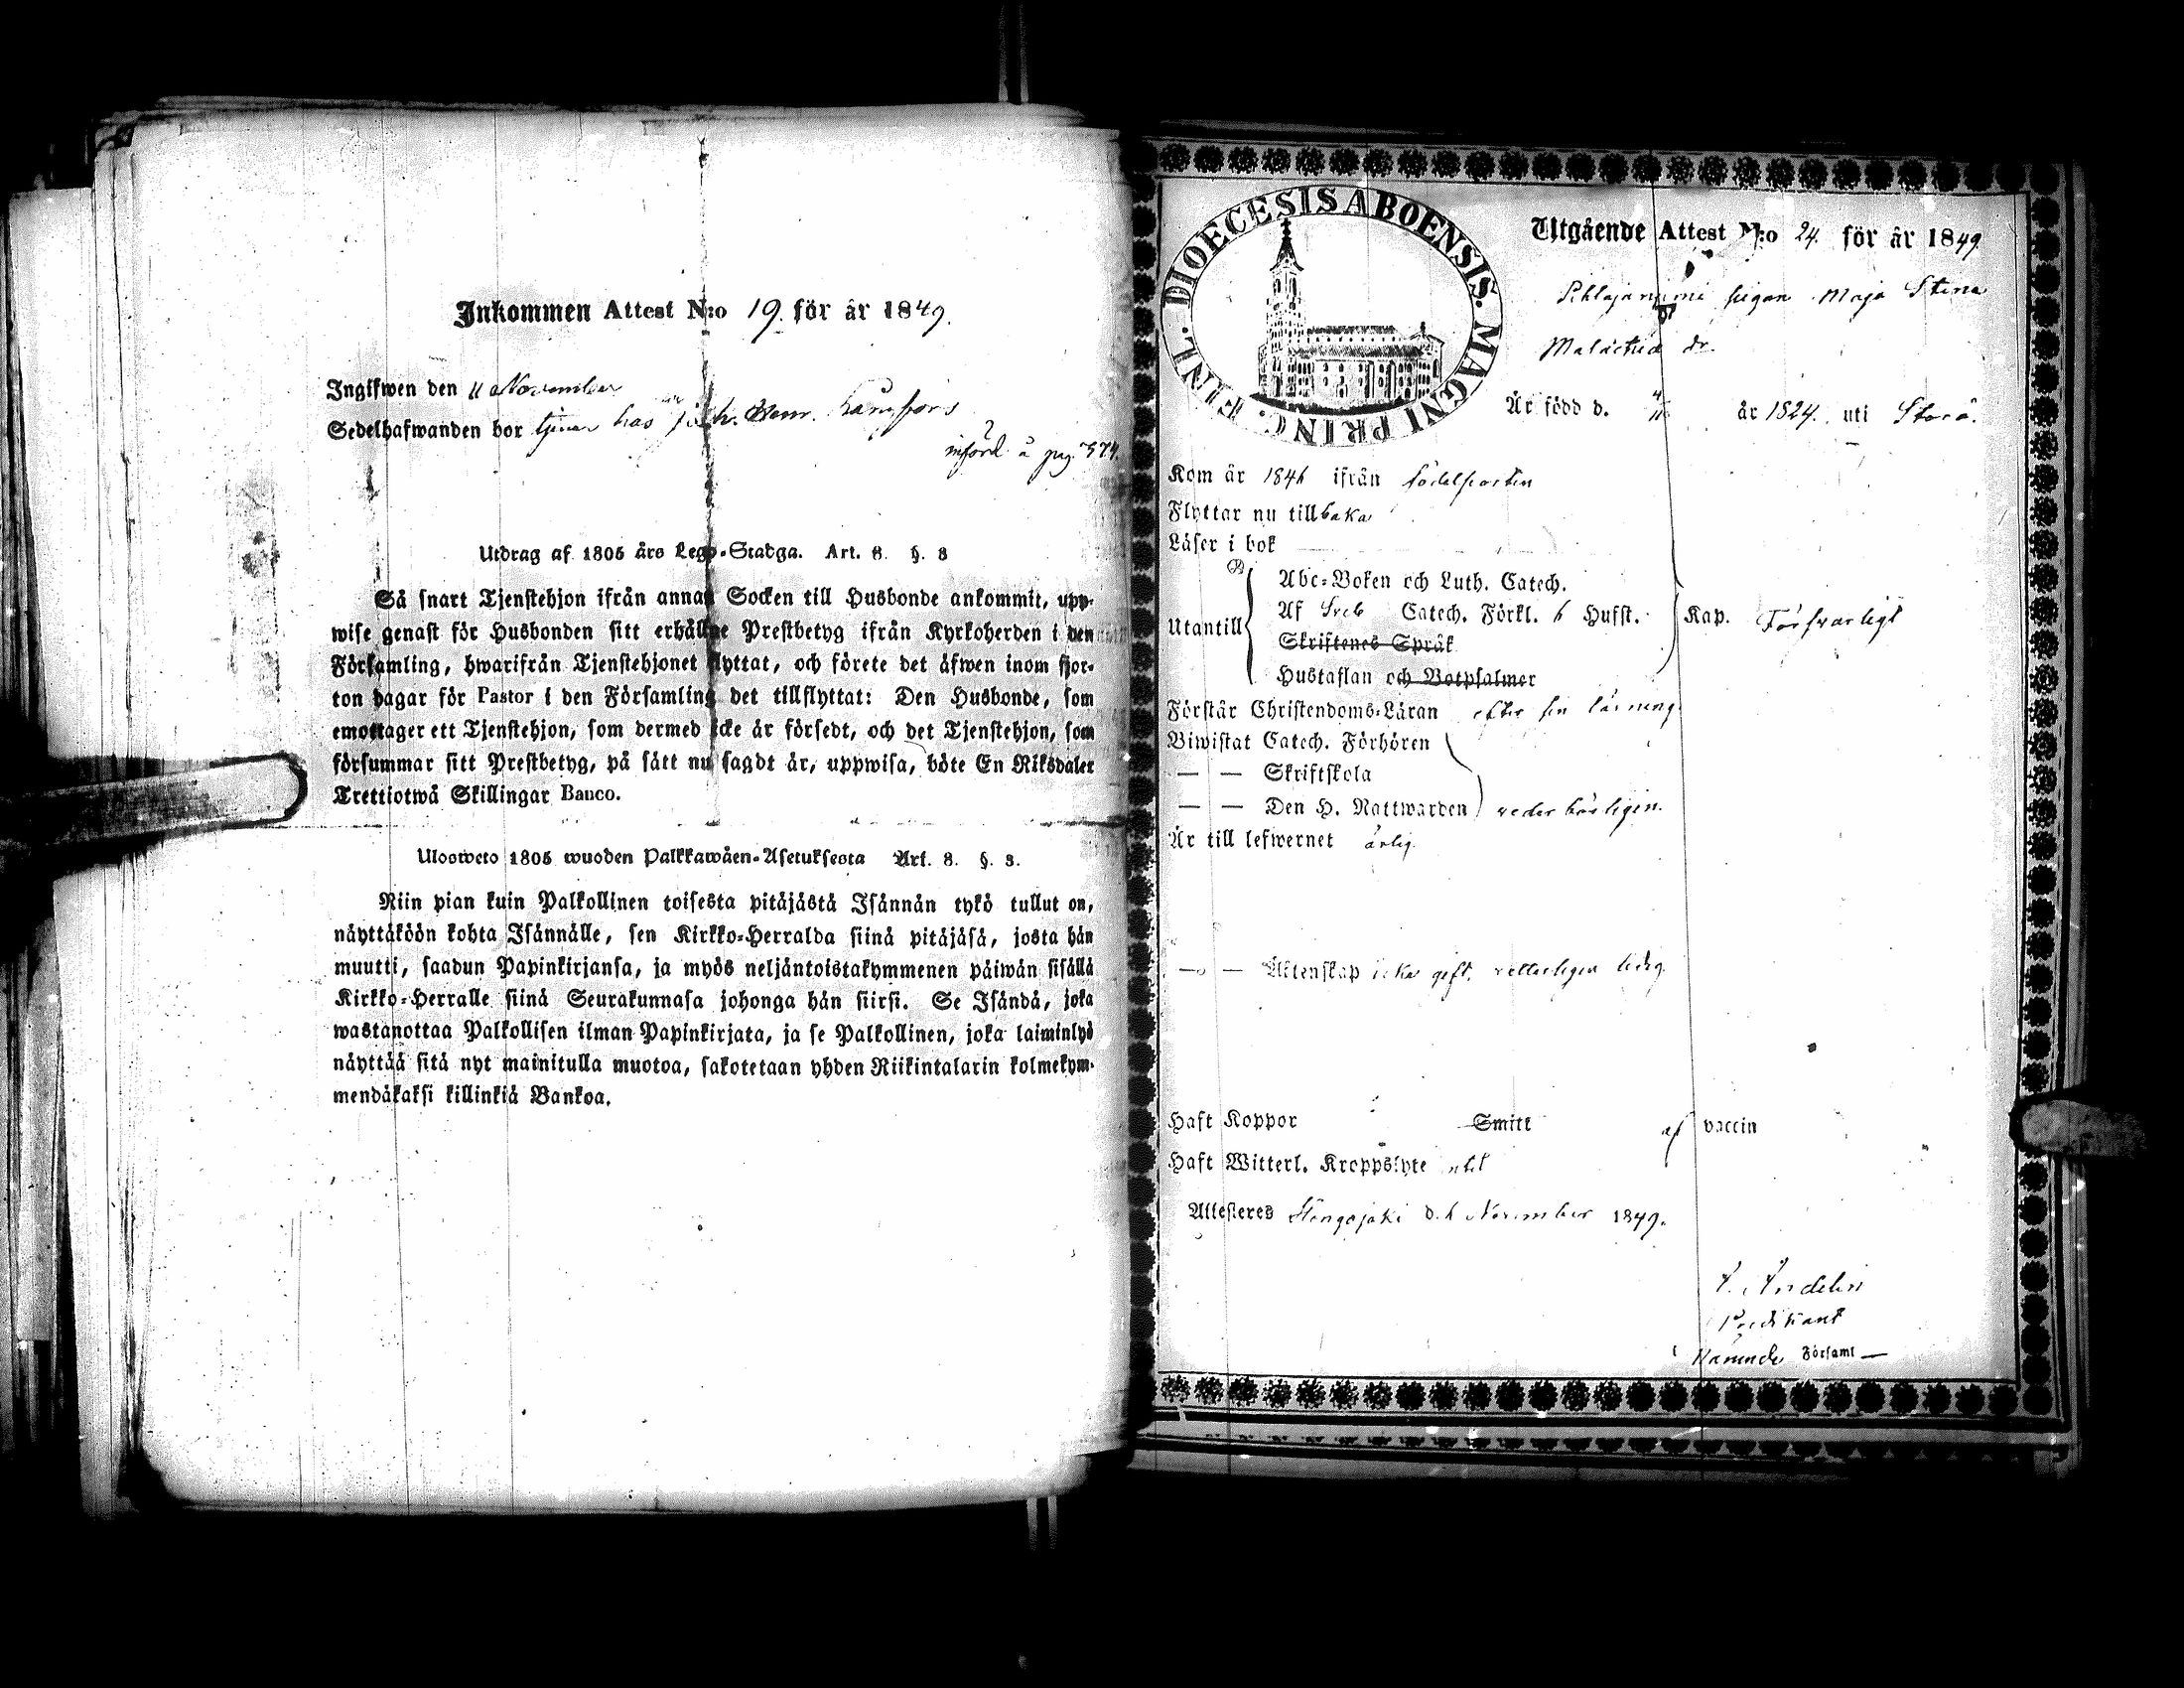 Inkommen Attest N:o 19. för år 1849.
Ingifwen den 11 November
Sedelhafwanden bor tjenar hos
införd å pag. 574.
Utdrag af 1805 års Lego-Stadga. Art. 8. §. 8
Så snart Tjenstehjon ifrån annan Socken till Husbonde ankommit, upp-
wise genast för Husbonden sitt erhållne Prestbetyg ifrån Kyrkoherden i den
Församling, hwarifrån Tjenstehjonet flyttat, och förete det äfwen inom fjor-
ton dagar för Pastor i den Församling det tillflyttat: Den Husbonde, som
emottager ett Tjenstehjon, som dermed icke är försedt, och det Tjenstehjon, som
försummar sitt Prestbetyg, på sätt nu sagdt är, uppwisa, böte En Riksdaler
Trettiotwå Skillingar Banco.
Ulosweto 1805 wuoden Palkkawäen-Asetuksesta Art. 8. §. 8.
Niin pian kuin Palkollinen toisesta pitäjästä Isännän tykö tullut on,
näyttäköön kohta Isännälle, sen Kirkko-Herralda siinä pitäjäsä, josta hän
muutti, saadun Papinkirjansa, ja myös neljäntoistakymmenen päiwän sisällä
Kirkko-Herralle siinä Seurakunnasa johonga hän siirsi. Se Isändä, joka
wastanottaa Palkollisen ilman Papinkirjata, ja se Palkollinen, joka laiminlyö
näyttää sitä nyt mainitulla muotoa, sakotetaan yhden Riikintalarin kolmekym-
mendäkaksi killinkiä Bankoa.
DIOECESIS ABOENSIS. MAGNI PRINC. FINL.
Utgående Attest N:o 24. för år 1849
pigan Maja Stina
År född d. 4/11 år 1824. uti Storå.
Kom år 1846 ifrån
Flyttar nu tillbaka
Läser i bok
Utantill
Abc-Boken och Luth. Catech.
Af Sveb Catech. Förkl. 6 Hufst.
Skriftenes Språk
Hustaflan och Botpsalmer
Kap. Försvarligt
Förstår Christendoms-Läran efter sin läsning.
Biwistat Catech. Förhören
— — Skriftskola
— — Den H. Nattwarden vederbörligen.
Är till lefwernet ärlig.
— — Äktenskap icke gift, veterligen ledig.
Haft Koppor Smitt af vaccin
Haft Witterl. Kroppslyte
Attesteres d. 6 November 1849.
Predikant
Församl